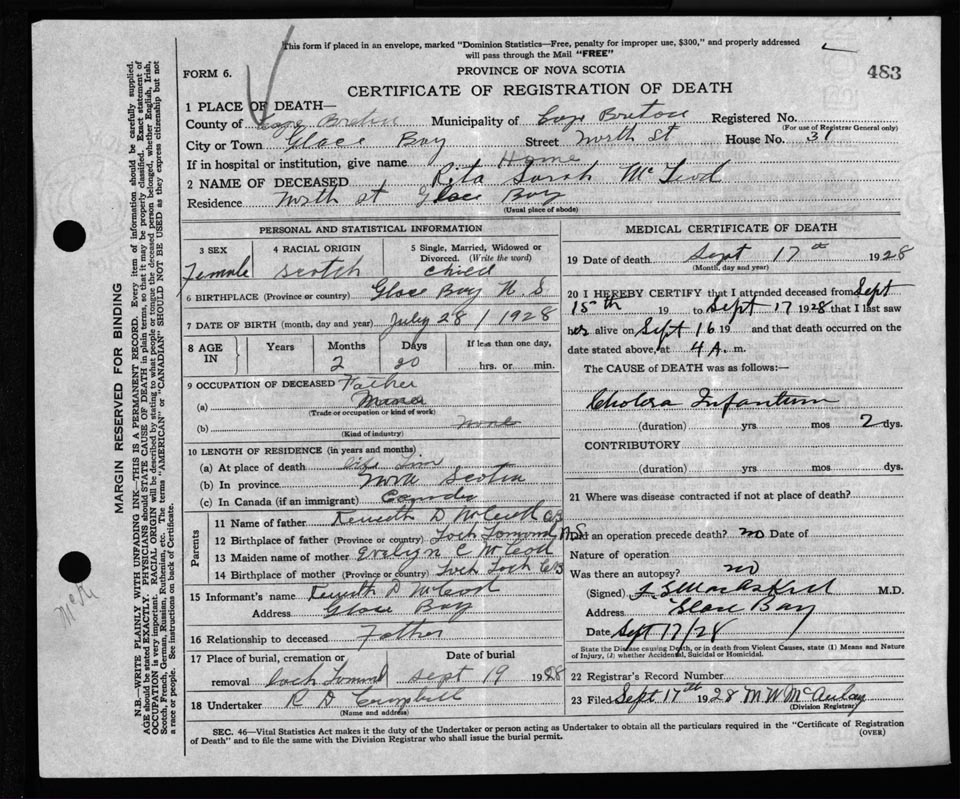 This form if placed in an envelope, marked "Dominion Statistics—Free, penalty for improper use, $300," and properly addressed
will pass through the Mail "FREE"
FORM 6.
PROVINCE OF NOVA SCOTIA
483
CERTIFICATE OF REGISTRATION OF DEATH
1 PLACE OF DEATH—
County of Cape Breton Municipality of Cape Breton Registered No.
(For use of Registrar General only)
City or Town Glace Bay Street North St House No. 31
If in hospital or institution, give name Home
2 NAME OF DECEASED Rita Sarah McLeod
Residence North St Glace Bay
(Usual place of abode)
PERSONAL AND STATISTICAL INFORMATION
3 SEX Female
4 RACIAL ORIGIN Scotch
5 Single, Married, Widowed or Divorced. (Write the word) Child
6 BIRTHPLACE (Province or country) Glace Bay N.S
7 DATE OF BIRTH (month, day and year) July 28 / 1928
8 AGE IN Years Months 2 Days 20 If less than one day, hrs. or min.
9 OCCUPATION OF DECEASED Father
(a) Miner
(Trade or occupation or kind of work)
(b) None
(Kind of industry)
10 LENGTH OF RESIDENCE (in years and months)
(a) At place of death life
(b) In province Nova Scotia
(c) In Canada (if an immigrant) Canada
Parents
11 Name of father Kenneth D McLeod C.B
12 Birthplace of father (Province or country) Loch Lomond N.S
13 Maiden name of mother Evelyn C McLeod
14 Birthplace of mother (Province or country) Loch C.B
15 Informant's name Kenneth D McLeod
Address Glace Bay
16 Relationship to deceased Father
17 Place of burial, cremation or removal Loch Lomond
Date of burial Sept 19 1928
18 Undertaker R D Campbell
(Name and address)
MEDICAL CERTIFICATE OF DEATH
19 Date of death Sept 17th 1928
(Month, day and year)
20 I HEREBY CERTIFY that I attended deceased from Sept
15th 19 to Sept 17 1928 that I last saw
her alive on Sept 16 19 and that death occurred on
date stated above, at 4 A. m.
The CAUSE of DEATH was as follows:
Cholera Infantum
(duration) yrs mos 2 dys.
CONTRIBUTORY
(duration) yrs mos dys.
21 Where was disease contracted if not at place of death?
Did an operation precede death? no Date of
Nature of operation
Was there an autopsy? no
(Signed) M.D.
Address Glace Bay
Date Sept 17/28
State the Disease causing Death, or in death from Violent Causes, state (1) Means and Nature
of Injury, (2) whether Accidental, Suicidal or Homicidal.
22 Registrar's Record Number
23 Filed Sept 17th 1928 M W McAulay
(Division Registrar)
SEC. 46—Vital Statistics Act makes it the duty of the Undertaker or person acting as Undertaker to obtain all the particulars required in the "Certificate of Registration
of Death" and to file the same with the Division Registrar who shall issue the burial permit.
(OVER)
MARGIN RESERVED FOR BINDING
N.B.—WRITE PLAINLY WITH UNFADING INK—THIS IS A PERMANENT RECORD. Every item of information should be carefully supplied.
AGE should be stated EXACTLY. PHYSICIANS should STATE CAUSE OF DEATH in plain terms, so that it may be properly classified. Exact statement of
OCCUPATION is very important. RACIAL ORIGIN will be described by stating to what people or tongue the deceased person belonged, whether English, Irish,
Scotch, French, German, Russian, Ruthenian, etc. The terms "AMERICAN" or "CANADIAN" SHOULD NOT BE USED as they express citizenship but not
a race or people. See instructions on back of Certificate.